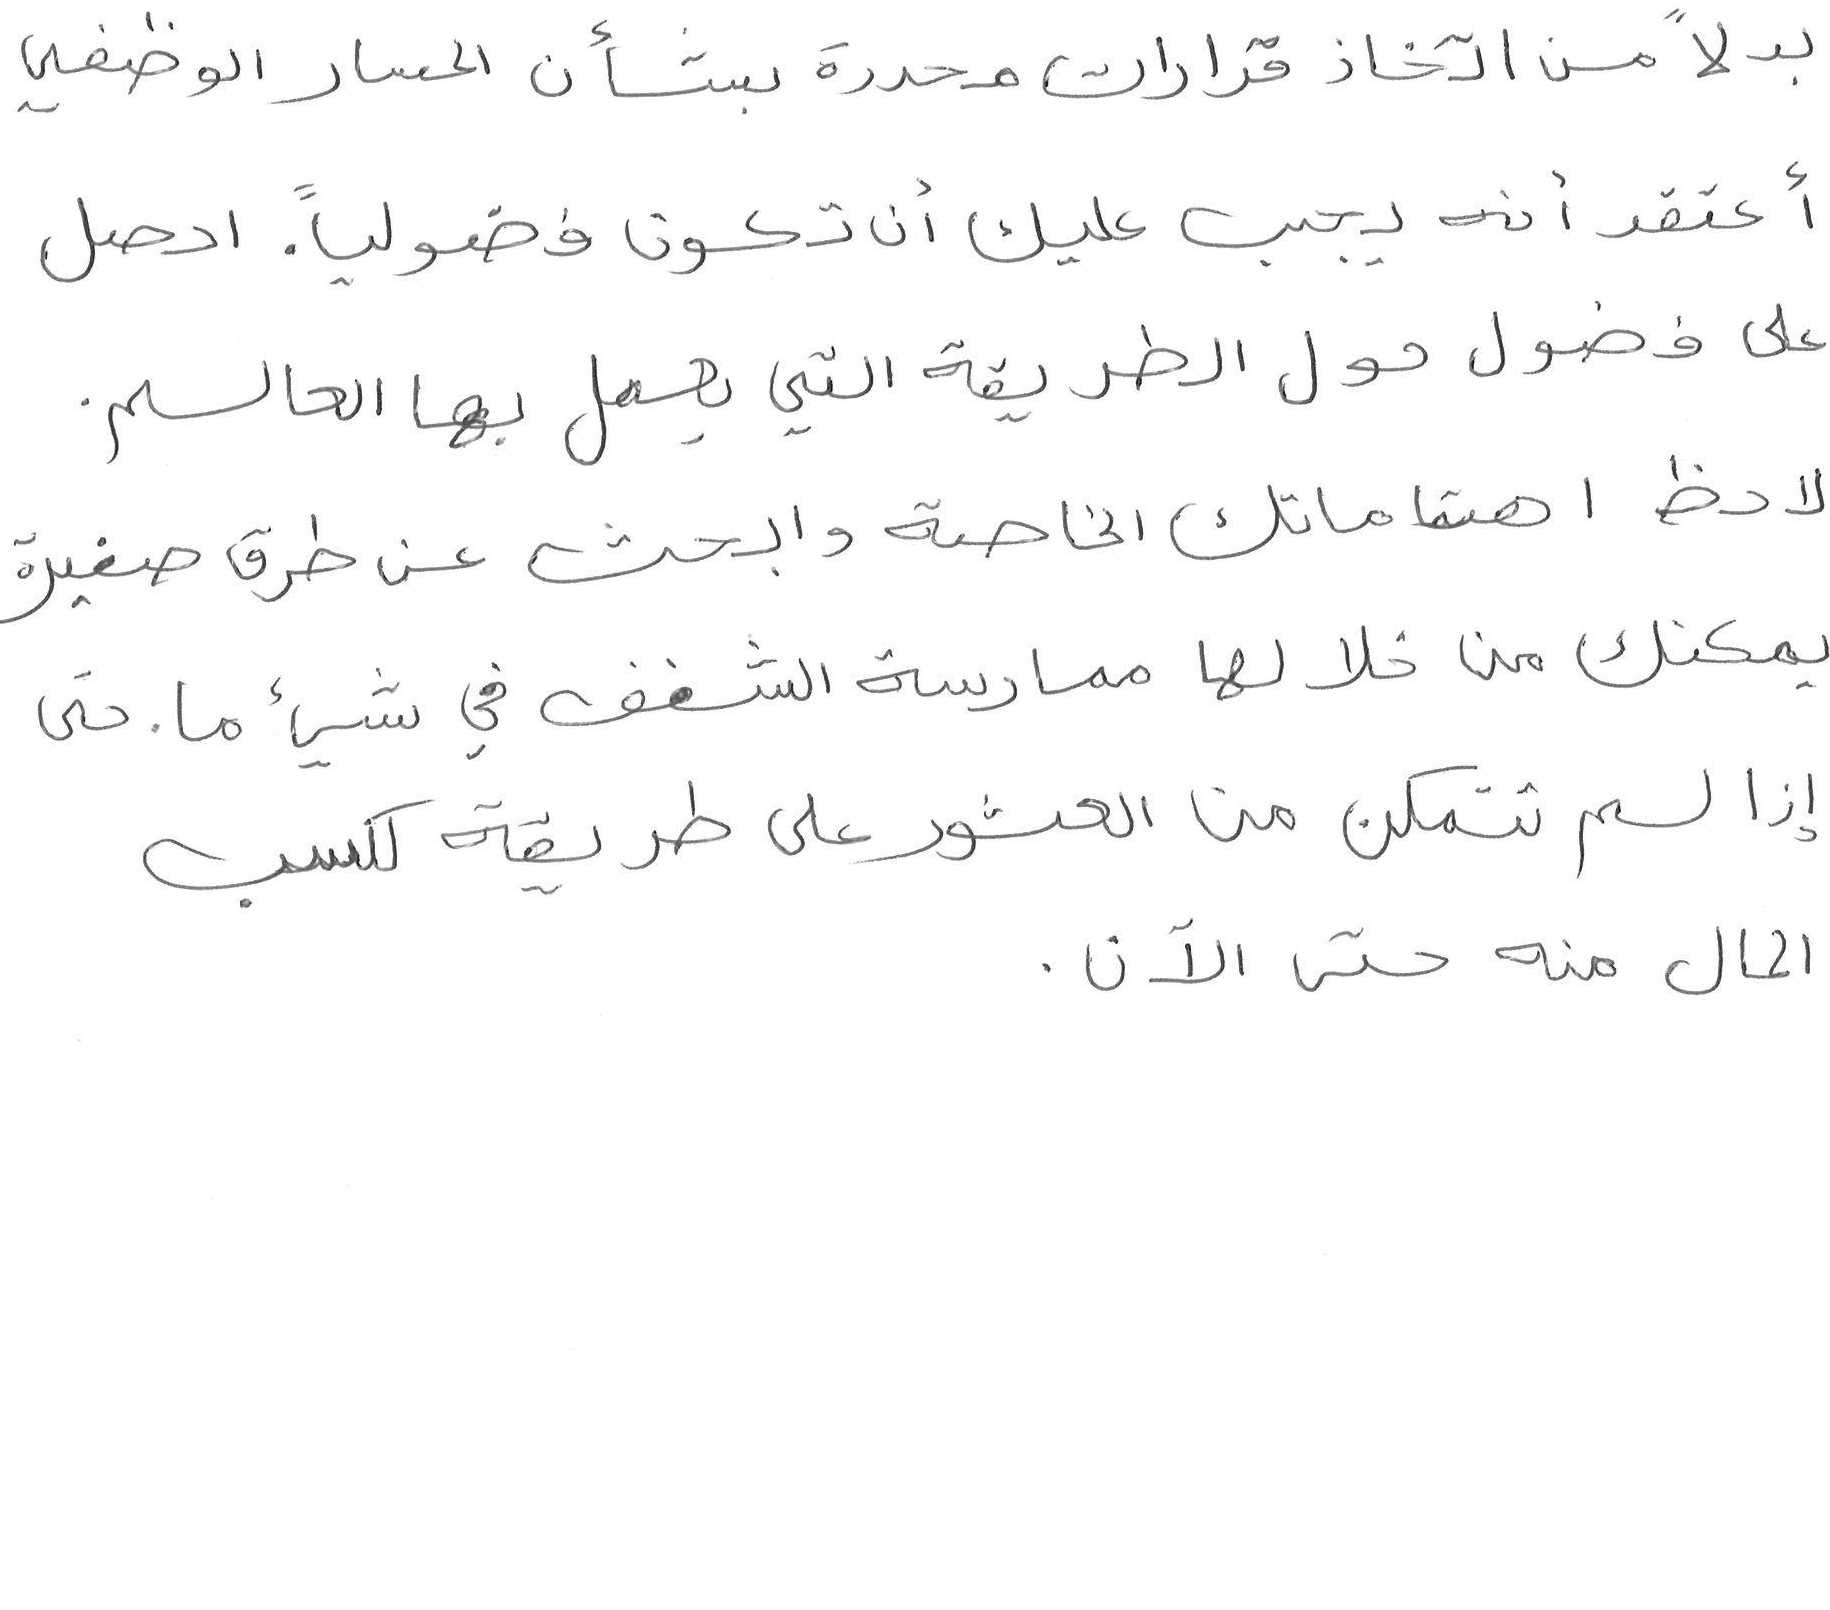 بدلاً من اتخاذ قرارات محددة بشأن المسار الوظفي
أعتقد أنه يجب عليك أن تكون فضولياً. احصل
على فضول حول الطريقة التي يعمل بها العالم.
لاحظ اهتماماتك الخاصة وابحث عن طرق صغيرة
يمكنك من خلالها ممارسة الشغف في شيئ ما. حتى
إذا لم تتمكن من العثور على طريقة لكسب
المال منه حتى الآن.